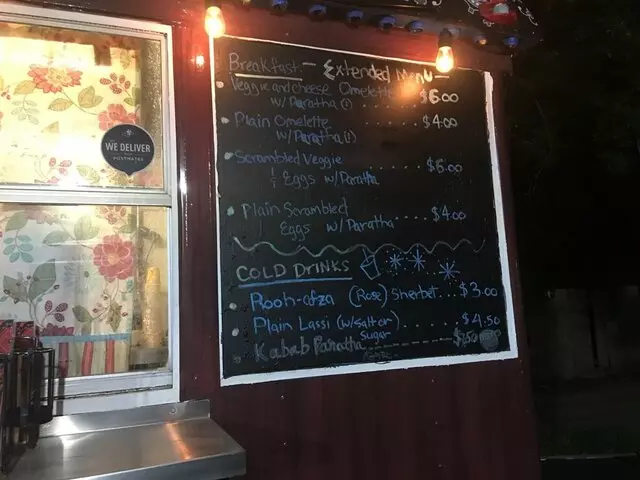 WE DELIVER
POSTMATES
Breakfast - Extended Menu -
Veggie and cheese Omelette $6.00
w/Paratha (1)
Plain Omelette ..... $4.00
w/Paratha (1)
Scrambled Veggie ..... $6.00
& Eggs w/Paratha
Plain Scrambled ..... $4.00
Eggs w/Paratha
COLD DRINKS
Rooh-afza (Rose) Sherbet... $3.00
Plain Lassi (w/salt or sugar) ..... $4.50
Kabab Paratha